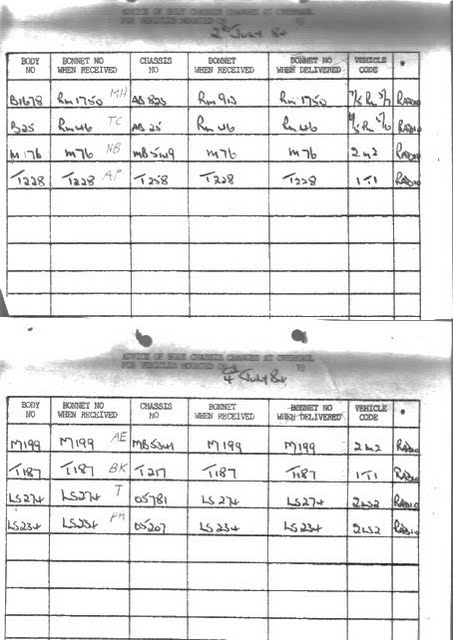 ADVICE OF BODY CHASSIS CHANGES AT OVERHAUL
FOR VEHICLES MOUNTED ON 19
2nd July 84
BODY NO BONNET NO WHEN RECEIVED CHASSIS NO BONNET WHEN RECEIVED BONNET NO WHEN DELIVERED VEHICLE CODE *
B1678 Rm1750 MH AB825 Rm 910 Rm 1750 7/5 Rm 5/7 RADIO
B25 Rm46 TC AB 25 Rm 46 Rm46 Rm RADIO
M176 M76 NB M76 M76 2m2 RADIO
T228 T228 AP T258 T228 T228 1T1 RADIO
ADVICE OF BODY CHASSIS CHANGES AT OVERHAUL
FOR VEHICLES MOUNTED ON 19
4th July 84
BODY NO BONNET NO WHEN RECEIVED CHASSIS NO BONNET WHEN RECEIVED BONNET NO WHEN DELIVERED VEHICLE CODE *
M199 M199 AE MB5341 M199 M199 2m2 RADIO
T187 T187 BK T217 T187 T187 1T1 RADIO
LS274 LS274 T 05781 LS274 LS274 2LS2 RADIO
LS234 LS234 PM 05207 LS234 LS234 2LS2 RADIO